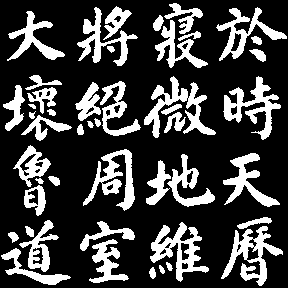 於時天曆
寢微地維
將絕周室
大壞魯道